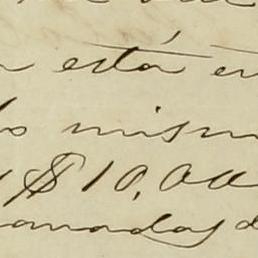 está en
lo mism
y $10,00
omadas d